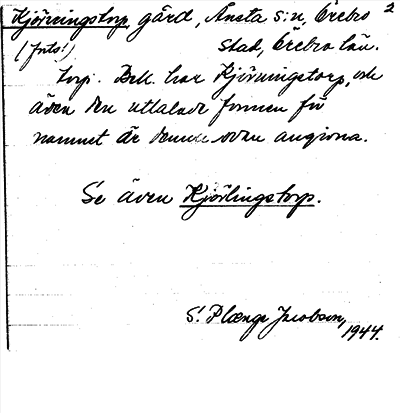 Kjörningstorp, gård, Ånsta s:n, Örebro 2
(forts!) stad, Örebro län.
torp. Dell. har Kjörningstorp, och
även den uttalade formen för
namnet är denna ovan angivna.
Se även Kjörlingstorp.
S. Plænge Jacobson,
1944.